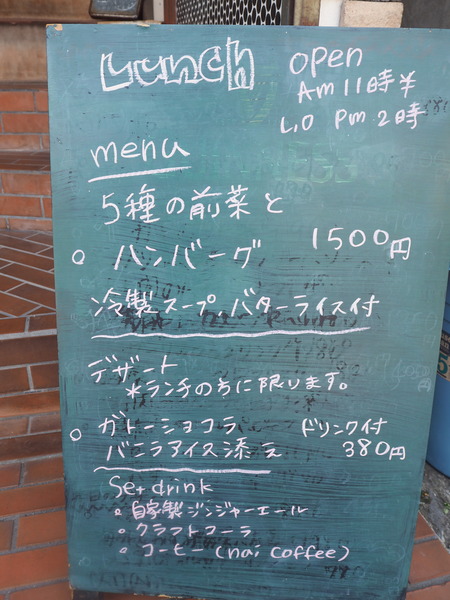 Lunch
open
Am 11時半
L.O Pm 2時
menu
5種の前菜と
○ ハンバーグ 1500円
冷製スープ、バターライス付
デザート
*ランチのちに限ります。
○ ガトーショコラ ドリンク付
バニラアイス添え 380円
Set drink
○ 自家製ジンジャーエール
○ クラフトコーラ
○ コーヒー (nai coffee)